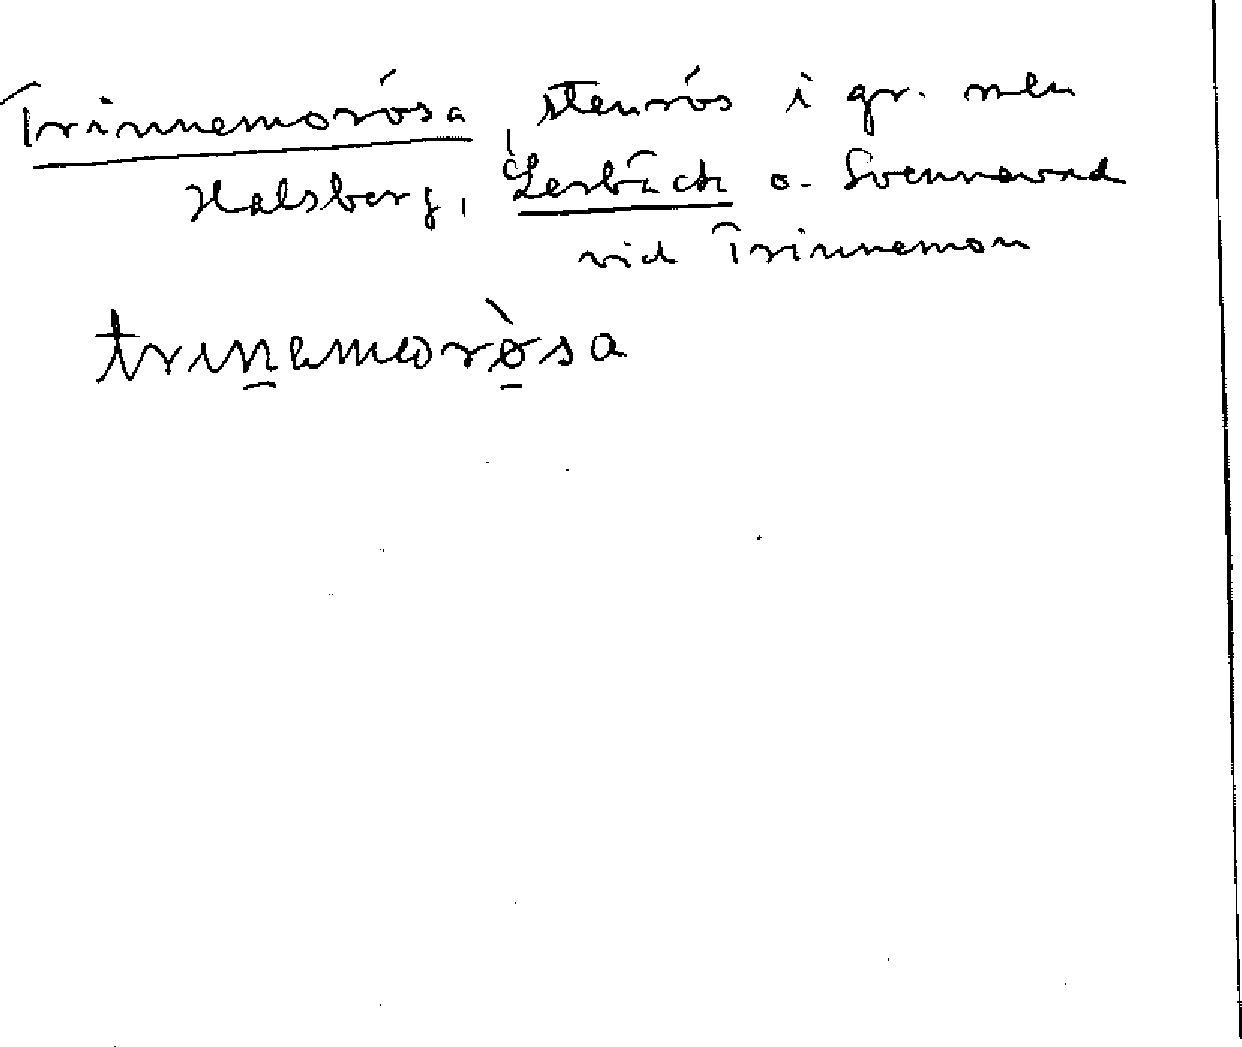 Trinnemorósa, stenrós i gr. mln
Halsberg, Lerbäck o. Svennevad
vid Trinnemon
trin̲emωrò̲sa